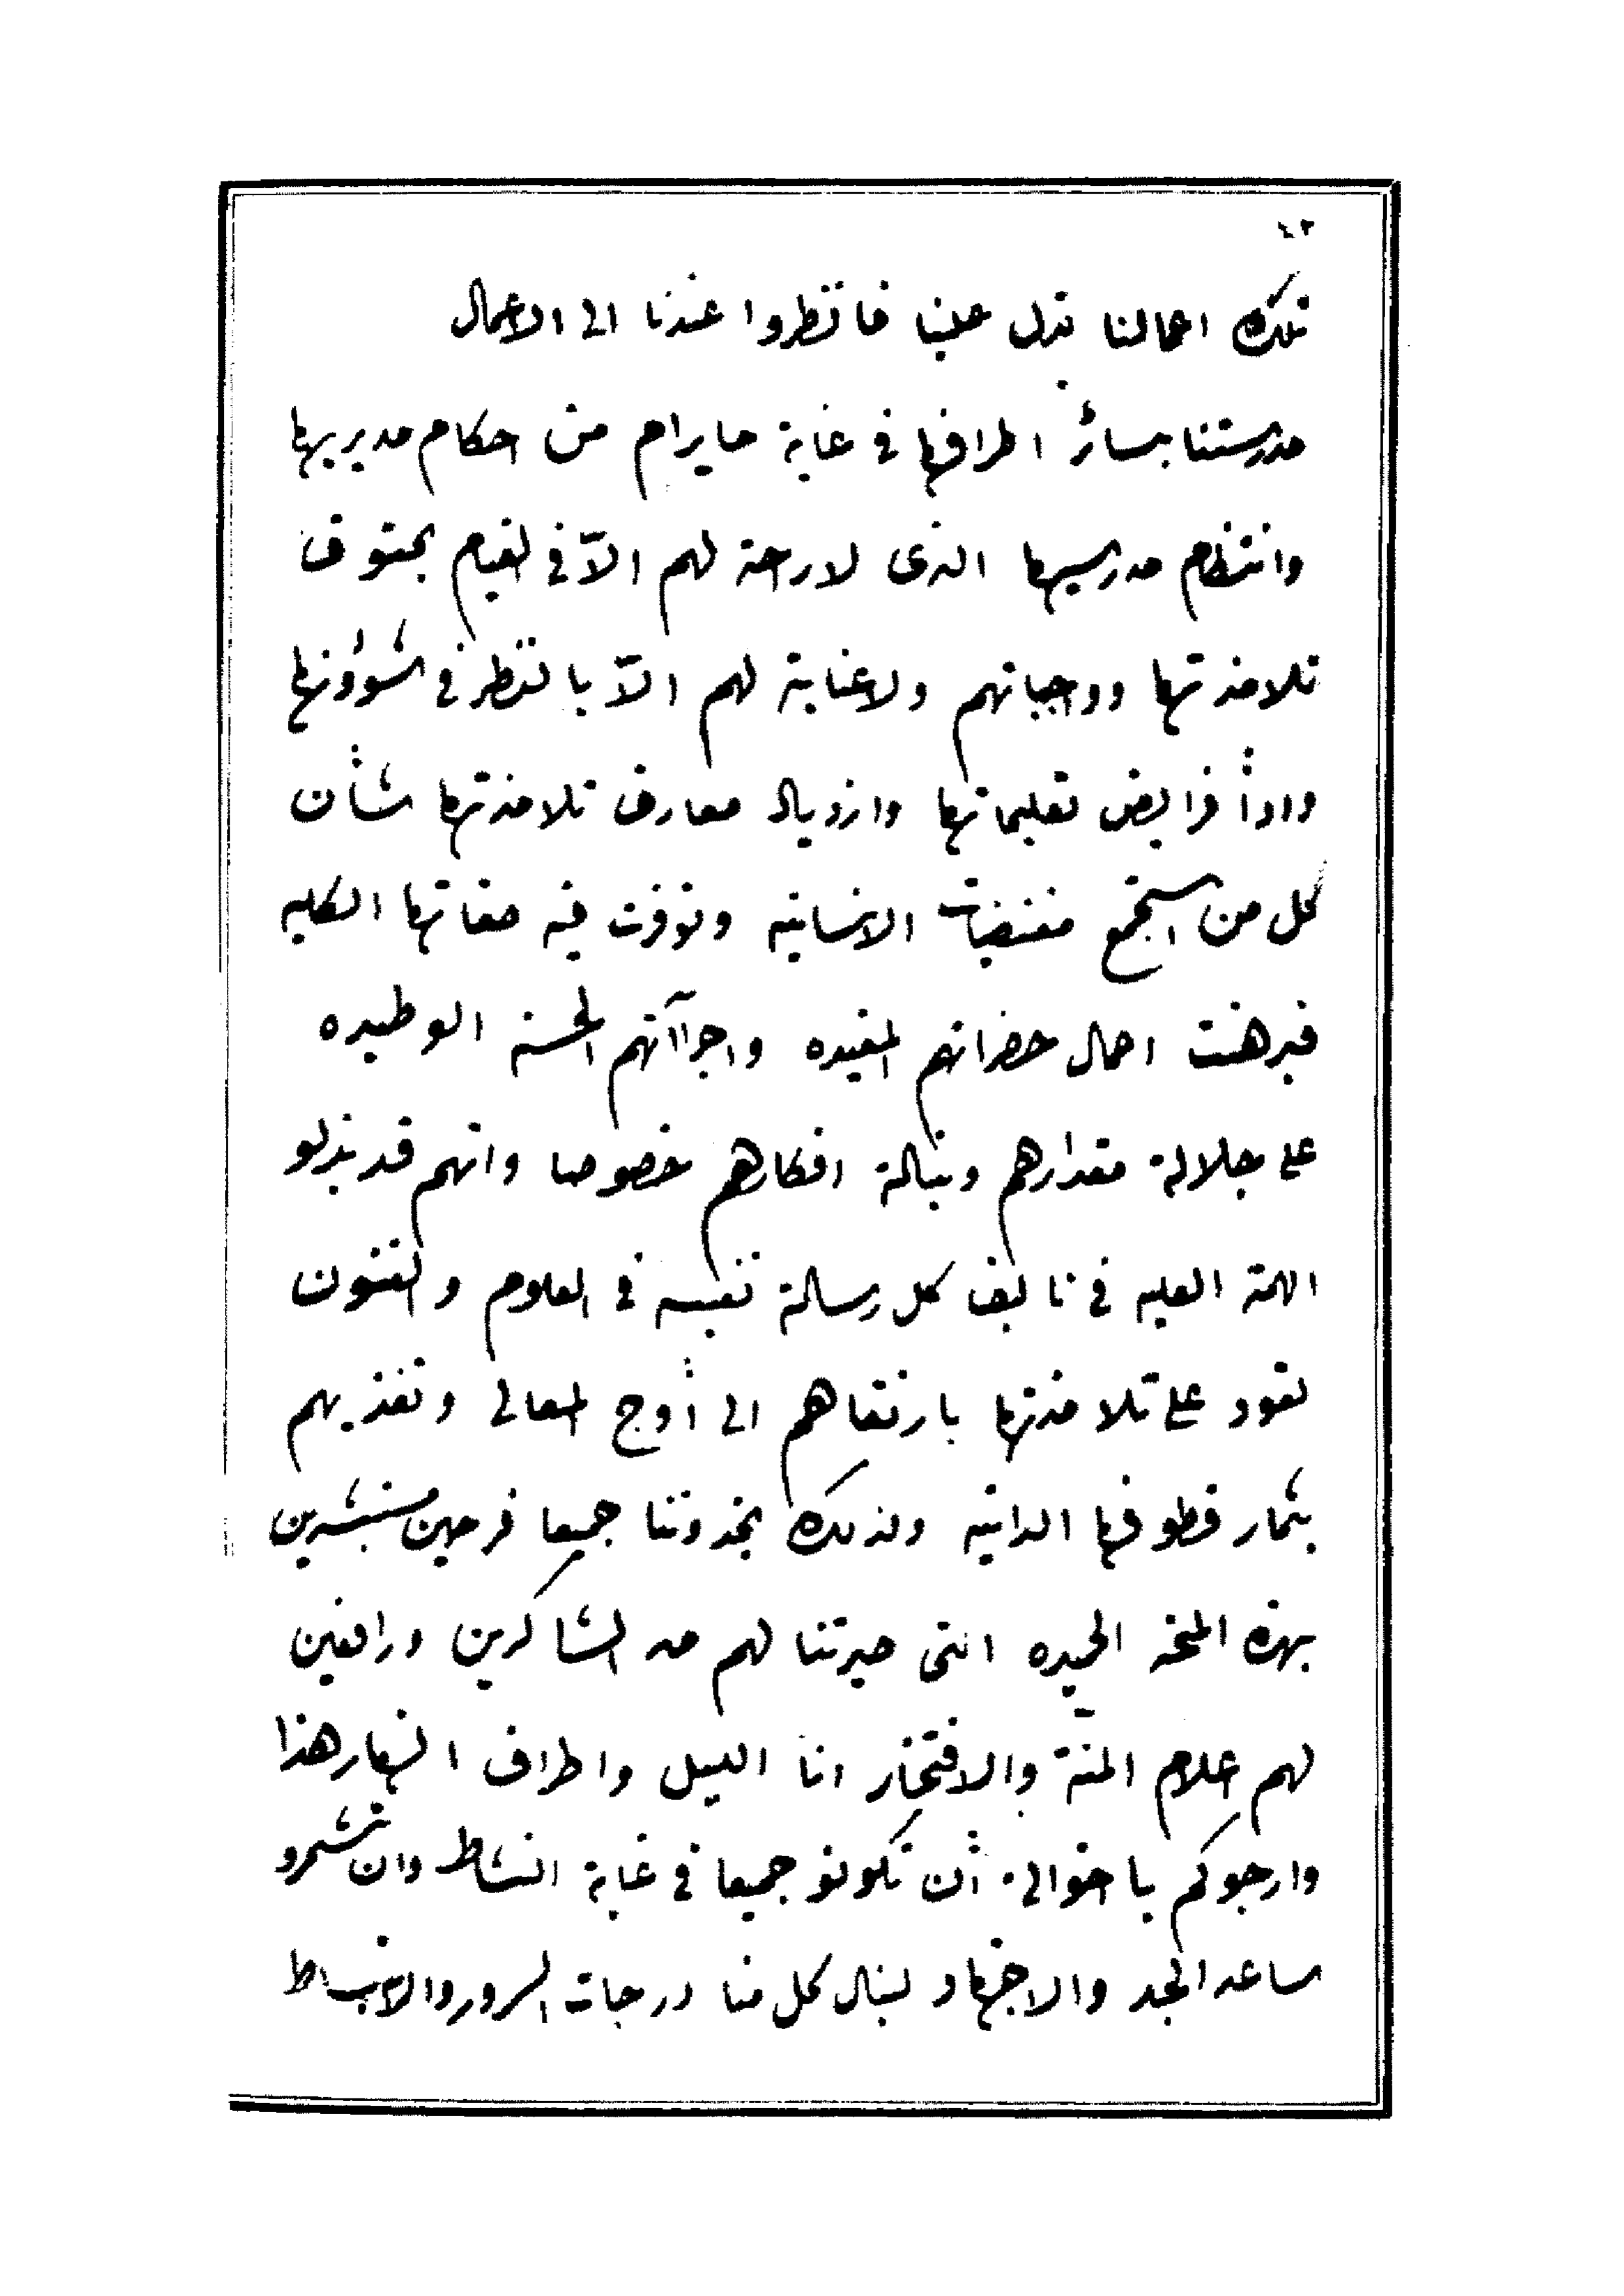 ٤٢
تلك اعمالنا تدل علينا فانظروا عندنا الى الاعمال
مدرستنا بسائر اطرافها فى غاية مايرام من احكام مديريها
وانتظام مدرسيها الذى لاراحة لهم الاّ فى القيام بحقوق
تلامذتها وواجباتهم ولاعناية لهم الاّ بالنظر فى شؤونها
واداأ فرايض تعليماتها وازدياد معارف تلامذتها شأن
كل من استجمع مقتضيات الانسانيه وتوفرت فيه صفاتها الكليه
فبرهنت اعمال حضراتهم المفيده واجراآتهم الحسنه الوطيده
على جلالة مقدارهم ونبالة افكارهم خصوصا وانهم قد بذلو
الهمة العليه فى تاليف كل رسالة نفيسه فى العلوم والفنون
تعود على تلامذتها بارتقاهم الى أوج المعالى وتغذيهم
بثمار قطوفها الدانيه ولذلك تجدوننا جميعا فرحين مستبشرين
بهذه المنحه الحميده التى صيرتنا لهم من الشاكرين ورافعين
لهم اعلام المنّة والافتخار انا الليل واطراف النهار هذا
وارجوكم يا اخوالى أن تكونو جميعا فى غاية النشاط وان تشمرو
ساعد الجد والاجتهاد لينال كل منا درجات السرور والانبساط